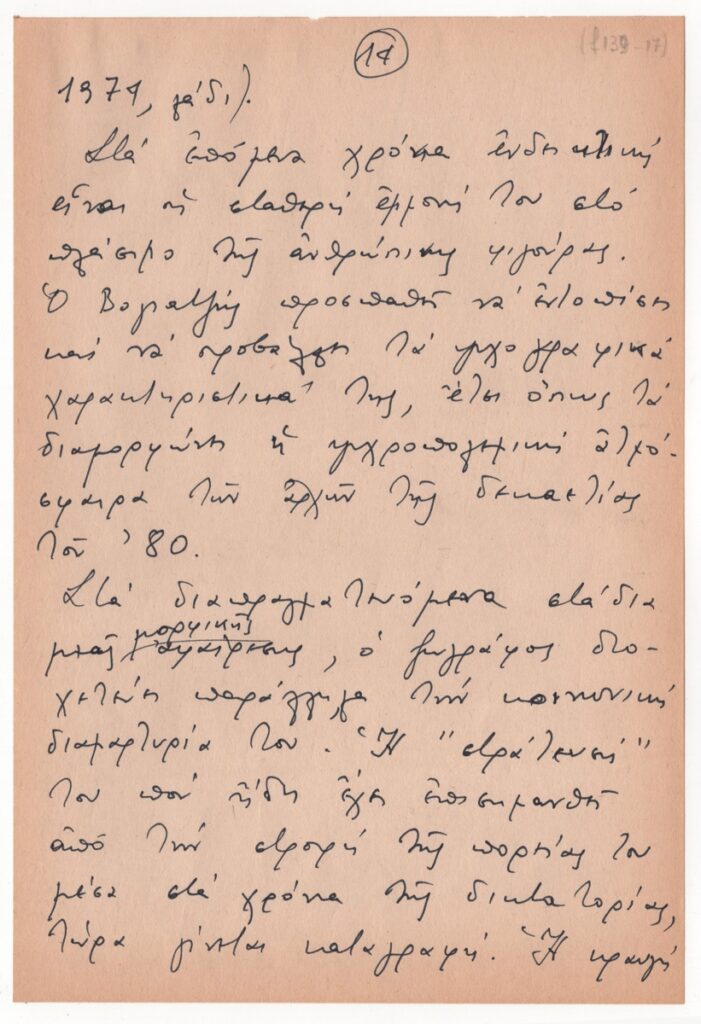 14
(f139-17)
1971, λάδι).
Στά ἑπόμενα χρόνια ἐνδεικτική
εἶναι ἡ σταθερή ἐμμονή του στό
πλάσιμο τῆς ἀνθρώπινης φιγούρας.
Ὁ Βογιατζῆς προσπαθεῖ νά ἐντοπίσει
καί νά προβάλλει τά ψυχογραφικά
χαρακτηριστικά της, ἔτσι ὅπως τά
διαμορφώνει ἡ ψυχροπολεμική ἀτμό-
σφαιρα τῶν ἀρχῶν τῆς δεκαετίας
τοῦ '80.
Στά διαπραγματευόμενα στάδια
μιᾶς μορφικῆς ἀφαίρεσης, ὁ ζωγράφος διο-
χετεύει παράλληλα τήν κοινωνική
διαμαρτυρία του. Ἡ "στράτευσή"
του πού ἤδη ἔχει ἐπισημανθεῖ
ἀπό τήν στροφή τῆς πορείας του
μέσα στά χρόνια τῆς δικτατορίας,
τώρα γίνεται καταγραφή. Ἡ κραυγή